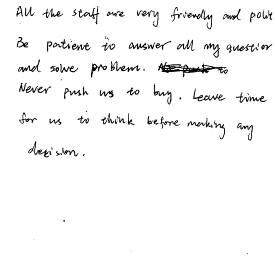 All the staff are very friendly and polit
Be patient to answer all my question
and solve problem. to
Never push us to buy. Leave time
for us to think before making any
decision.